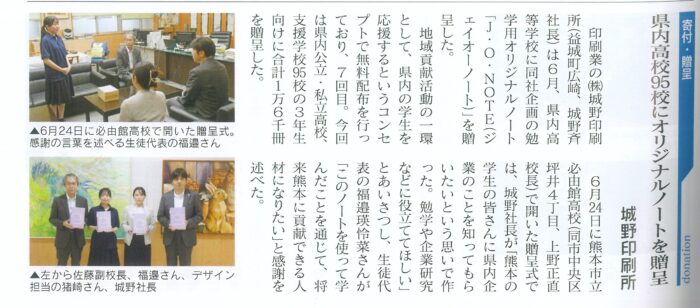 寄付・贈呈
donation
県内高校95校にオリジナルノートを贈呈
城野印刷所
印刷業の㈱城野印刷
所(益城町広崎、城野斉
社長)は6月、県内高
等学校に同社企画の勉
学用オリジナルノート
「J・O・NOTE(ジ
ェイオーノート)」を贈
呈した。
地域貢献活動の一環
として、県内の学生を
応援するというコンセ
プトで無料配布を行っ
ており、7回目。今回
は県内公立・私立高校、
支援学校95校の3年生
向けに合計1万6千冊
を贈呈した。
6月24日に熊本市立
必由館高校(同市中央区
坪井4丁目、上野正直
校長)で開いた贈呈式で
は、城野社長が「熊本の
学生の皆さんに県内企
業のことを知ってもら
いたいという思いで作
った。勉学や企業研究
などに役立ててほしい」
とあいさつし、生徒代
表の福邉瑛怜菜さんが
「このノートを使って学
んだことを通じて、将
来熊本に貢献できる人
材になりたい」と感謝を
述べた。
▲6月24日に必由館高校で開いた贈呈式。
感謝の言葉を述べる生徒代表の福邉さん
▲左から佐藤副校長、福邉さん、デザイン
担当の猪﨑さん、城野社長